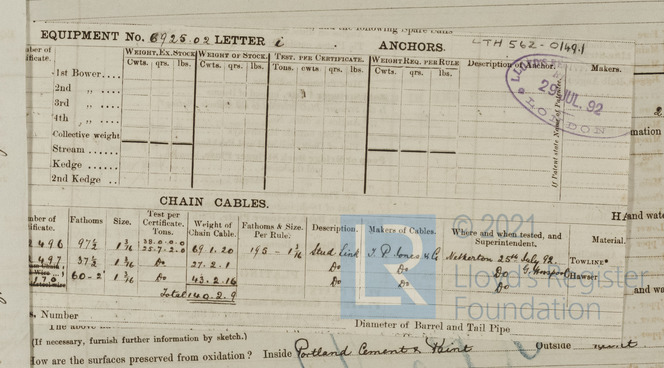 the following Spare
EQUIPMENT No. 6925.02 LETTER i ANCHORS. LTH 562-0149.1
Number of Certificate. WEIGHT, EX. STOCK WEIGHT OF STOCK. TEST, PER CERTIFICATE. WEIGHT REQ. PER RULE Description of Anchor. Makers.
Cwts. qrs. lbs. Cwts. qrs. lbs. Tons. cwts. qrs. lbs. Cwts. qrs. lbs.
1st Bower....
2nd ,, ....
3rd ,, ....
4th ,, ....
Collective weight
Stream ......
Kedge ......
2nd Kedge ..
If Patent state Name of Patentee.
29 JUL. 92
LONDON
CHAIN CABLES.
Number of Certificate. Fathoms. Size. Test per Certificate. Tons. Weight of Chain Cable. Fathoms & Size Per Rule. Description. Makers of Cables. Where and when tested, and Superintendent. Material.
2496 97½ 1 3/16 38.0.0.0 25.7.2.0 69.1.20 195 - 1 3/16 Stud Link T. P. Jones & Co Netherton 25th July 92. TOWLINE
497 37½ 1 3/16 Do 27.2.1 Do Do Do HAWSER
60-2 1 3/16 Do 43.2.16 Do Do Do
Total 140.2.9
© 2021
LR
Lloyd's Register
Foundation
s. Number
The above
Diameter of Barrel and Tail Pipe
(If necessary, furnish further information by sketch.)
How are the surfaces preserved from oxidation? Inside Portland Cement & Paint Outside Paint